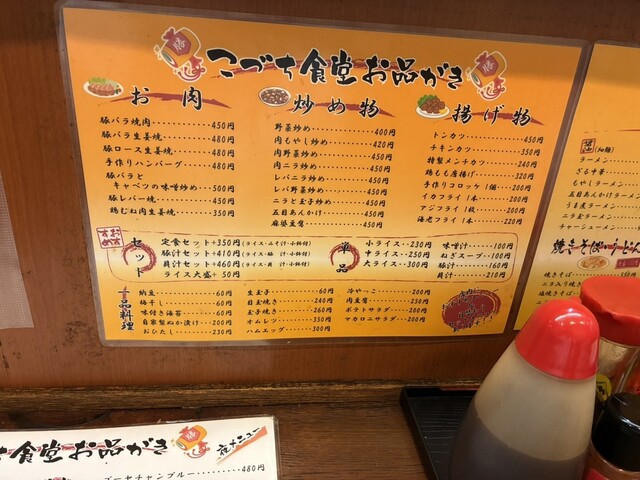 こづち食堂お品がき
お肉
豚バラ焼肉 450円
豚バラ生姜焼 480円
豚ロース生姜焼 480円
手作りハンバーグ 480円
豚バラと
キャベツの味噌炒め 500円
豚レバー焼 450円
鶏むね肉生姜焼 350円
炒め物
野菜炒め 400円
肉もやし炒め 420円
肉野菜炒め 450円
肉ニラ炒め 450円
レバニラ炒め 450円
レバ野菜炒め 450円
ニラと玉子炒め
五目あんかけ 450円
麻婆豆腐
揚げ物
トンカツ 450円
チキンカツ 350円
特製メンチカツ 240円
鶏もも唐揚げ 320円
手作りコロッケ 1個 200円
イカフライ 1本 220円
アジフライ 1枚 200円
海老フライ 1本 220円
おすすめ
セット
定食セット+350円(ライス・みそ汁・小鉢付)
豚汁セット+410円(ライス・豚汁・小鉢付)
貝汁セット+460円(ライス・貝汁・小鉢付)
ライス大盛+50円
単品
小ライス 230円
中ライス 250円
大ライス 300円
味噌汁 100円
ねぎスープ 100円
豚汁 160円
貝汁 210円
一品料理
納豆 60円
梅干し 60円
味付き海苔 60円
自家製ぬか漬け 200円
おひたし 230円
生玉子 60円
目玉焼き 240円
玉子焼き 260円
オムレツ 350円
ハムエッグ 300円
冷やっこ 200円
肉豆腐 230円
ポテトサラダ 200円
マカロニサラダ 200円
醤油(細麺)
ラーメン
ざる中華
もやしラーメン
五目あんかけラーメン
うま煮ラーメン
ニラ玉ラーメン
チャーシューメン
焼きそば・うどん
焼きそば
ニラ入り焼き
づち食堂お品がき
夜メニュー
ゴーヤチャンプルー 480円